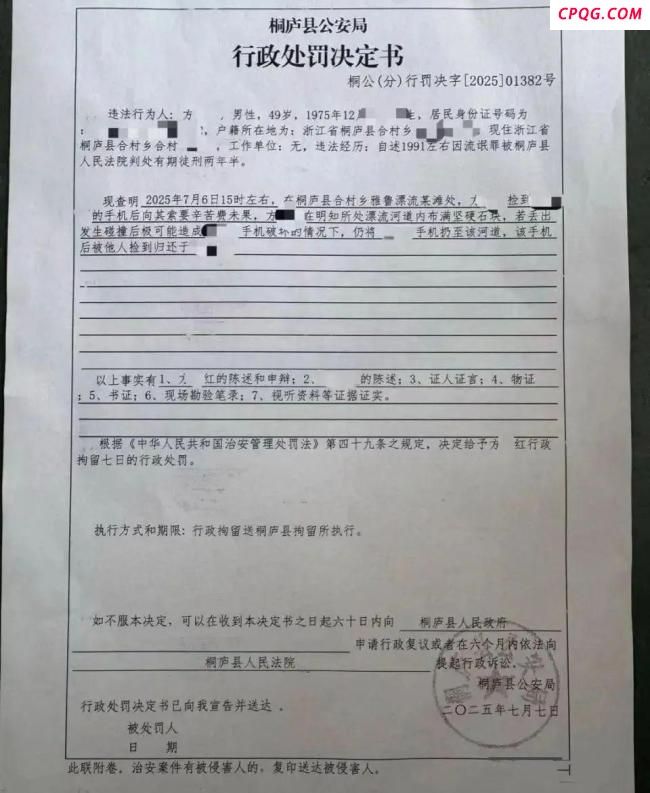 CPQG.COM
桐庐县公安局
行政处罚决定书
桐公(分)行罚决字[2025]01382号
违法行为人：方 ，男性，49岁，1975年12 生，居民身份证号码为
： ，户籍所在地为：浙江省桐庐县合村乡 现住浙江省
桐庐县合村乡合村 ，工作单位：无，违法经历：自述1991左右因流氓罪被桐庐县
人民法院判处有期徒刑两年半。
现查明 2025年7月6日15时左右，在桐庐县合村乡雅鲁漂流某滩处， 捡到
的手机后向其索要辛苦费未果，方 在明知所处漂流河道内布满坚硬石块，若丢出
发生碰撞后极可能造成 手机破坏的情况下，仍将 手机扔至该河道，该手机
后被他人捡到归还于
以上事实有1、 红的陈述和申辩；2、 的陈述；3、证人证言；4、物证
；5、书证；6、现场勘验笔录；7、视听资料等证据证实。
根据《中华人民共和国治安管理处罚法》第四十九条之规定，决定给予方 红行政
拘留七日的行政处罚。
执行方式和期限：行政拘留送桐庐县拘留所执行。
如不服本决定，可以在收到本决定书之日起六十日内向 桐庐县人民政府
申请行政复议或者在六个月内依法向
桐庐县人民法院 提起行政诉讼。
桐庐县公安局
二〇二五年七月七日
行政处罚决定书已向我宣告并送达 。
被处罚人
日 期
此联附卷，治安案件有被侵害人的，复印送达被侵害人。